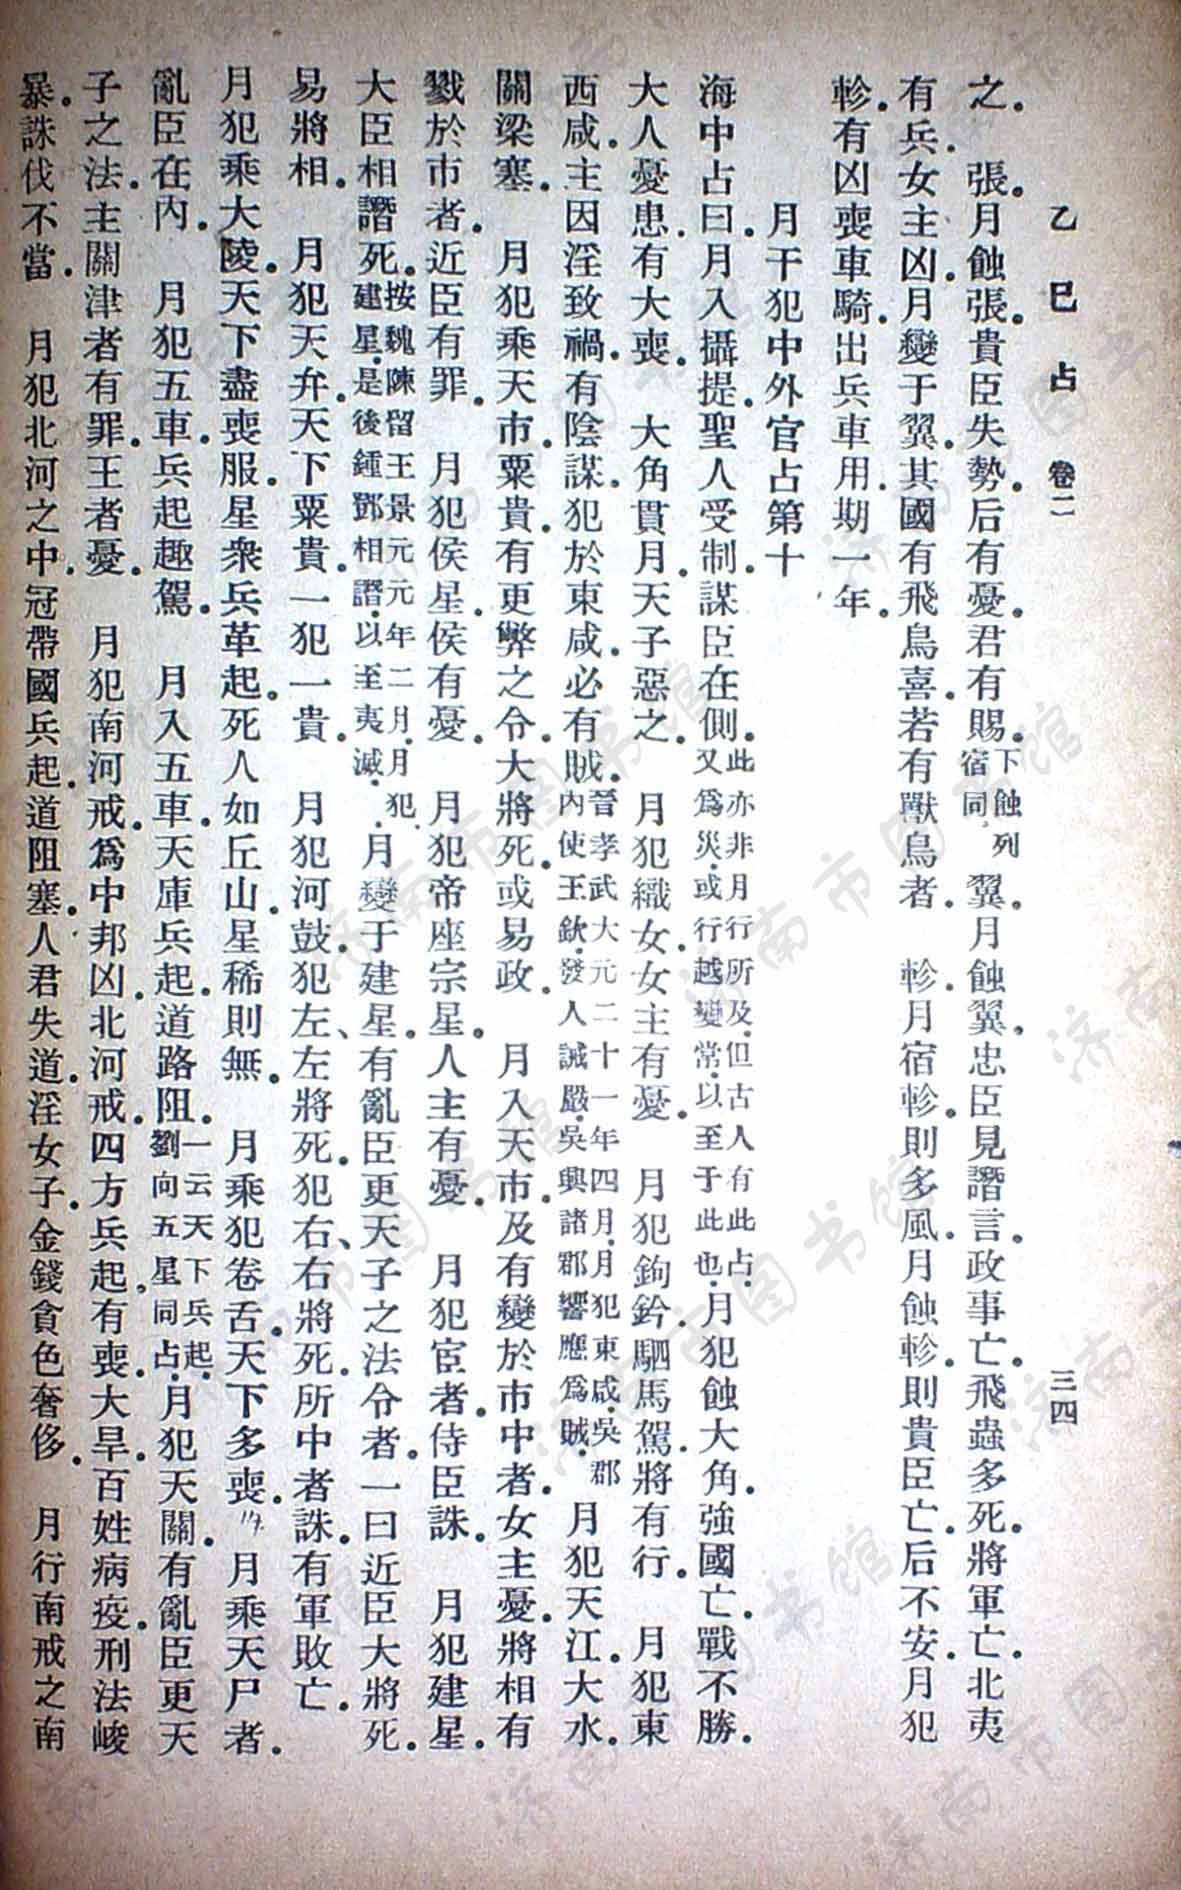 乙巳占 卷二 三四
之。 張。月蝕張。貴臣失勢。后有憂。君有賜。下蝕列宿同。 翼。月蝕翼。忠臣見譖言。政事亡。飛蟲多死。將軍亡。北夷
有兵。女主凶。月變于翼。其國有飛鳥喜。若有獸鳥者。 軫。月宿軫。則多風。月蝕軫。則貴臣亡。后不安。月犯
軫。有凶喪車騎出兵車用。期一年。
月干犯中外官占第十
海中占曰。月入攝提。聖人受制。謀臣在側。此亦非月行所及。但古人有此占。又爲災。或行越變常。以至于此也。月犯蝕大角。強國亡。戰不勝。
大人憂患。有大喪。 大角貫月。天子惡之。 月犯織女。女主有憂。 月犯鉤鈐。駟馬駕。將有行。 月犯東
西咸。主因淫致禍。有陰謀。犯於東咸。必有賊。晉孝武大元二十一年四月。月犯東咸。吳郡內使王欽。發人誡嚴。吳興諸郡響應爲賊。 月犯天江。大水。
關梁塞。 月犯乘天市。粟貴。有更弊之令。大將死。或易政。 月入天市。及有變於市中者。女主憂。將相有
戮於市者。近臣有罪。 月犯侯星。侯有憂。 月犯帝座宗星。人主有憂。 月犯宦者。侍臣誅。 月犯建星。
大臣相譖死。按魏陳留王景元元年二月。月犯建星。是後鍾鄧相譖。以至夷滅。月變于建星。有亂臣更天子之法令者。一曰近臣大將死。
易將相。 月犯天弁。天下粟貴。一犯一貴。 月犯河鼓。犯左、左將死。犯右、右將死。所中者誅。有軍敗亡。
月犯乘大陵。天下盡喪服。星衆兵革起。死人如丘山。星稀則無。 月乘犯卷舌。天下多喪。 月乘天尸者。
亂臣在內。 月犯五車。兵起趣駕。 月入五車。天庫兵起。道路阻。一云天下兵起。劉向五星同占。月犯天關。有亂臣更天
子之法。主關津者有罪。王者憂。 月犯南河戒。爲中邦凶。北河戒。四方兵起。有喪。大旱。百姓病疫。刑法峻
暴。誅伐不當。 月犯北河之中。冠帶國兵起。道阻塞。人君失道。淫女子。金錢貪色奢侈。 月行南戒之南